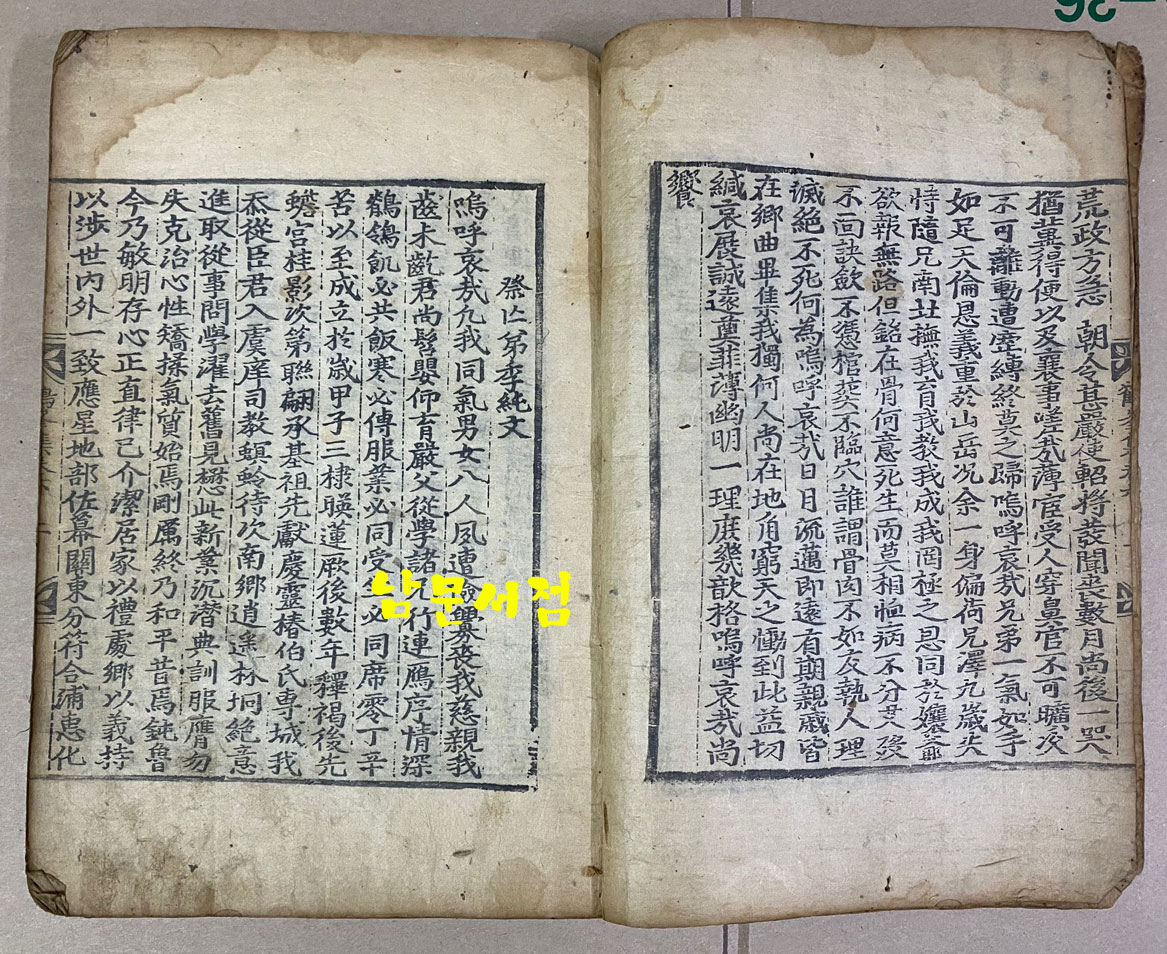 荒政方急 朝令甚嚴使軺將發聞喪數月尚後一哭
猶冀得便以及襄事嗟哉薄宦受人穿鼻官不可曠家
不可離動遭牽縛終莫之歸嗚呼哀哉兄弟一氣如手
如足天倫恩義重於山岳况余一身偏荷兄澤九歲失
恃隨兄南北撫我育我教我成我罔極之恩同於孃爺
欲報無路但銘在骨何意死生而莫相恤病不分灸歿
不面訣斂不憑棺葬不臨穴誰謂骨肉不如友執人理
滅絶不死何為嗚呼哀哉日月流邁即遠有期親戚皆
在鄉曲畢集我獨何人尚在地角窮天之慟到此益切
緘哀展誠遠奠菲薄幽明一理庶幾歆格嗚呼哀哉尚
饗
祭亡弟季純文
嗚呼哀哉凡我同氣男女八人夙遭愍凶喪我慈親我
齒未齔君尚髫嬰仰育嚴父從學諸兄行連鴈序情深
鶺鴒飢必共飯寒必傅服業必同受 必同席零丁辛
苦以至成立於歲甲子三棣聯蓮厥後數年釋褐後先
蟾宮桂影次第聯翩承基祖先獻慶靈椿伯氏専城我
忝從臣君入虞庠司教螟蛉待次南鄉逍遙林坰絶意
進取從事問學濯去舊見懋此新業沉潜典訓服膺勿
失克治心性矯揉氣質始焉剛厲終乃和平昔焉鈍魯
今乃敏明存心正直律己介潔居家以禮處鄉以義持
以涉世内外一致應星地部佐幕關東分符合浦惠化
남문서점